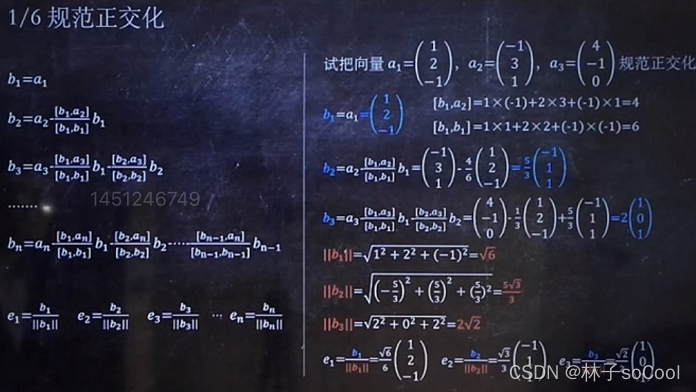 1/6 规范正交化
b₁=a₁
b₂=a₂-[b₁,a₂]/[b₁,b₁] b₁
b₃=a₃-[b₁,a₃]/[b₁,b₁] b₁-[b₂,a₃]/[b₂,b₂] b₂
.......
bₙ=aₙ-[b₁,aₙ]/[b₁,b₁] b₁-[b₂,aₙ]/[b₂,b₂] b₂-····-[bₙ₋₁,aₙ]/[bₙ₋₁,bₙ₋₁] bₙ₋₁
e₁=b₁/||b₁|| e₂=b₂/||b₂|| e₃=b₃/||b₃|| ··· eₙ=bₙ/||bₙ||
1451246749
试把向量 a₁=(1 2 −1), a₂=(−1 3 1), a₃=(4 −1 0) 规范正交化
b₁=a₁=(1 2 −1) [b₁,a₂]=1×(-1)+2×3+(-1)×1=4
[b₁,b₁]=1×1+2×2+(-1)×(-1)=6
b₂=a₂-[b₁,a₂]/[b₁,b₁] b₁=(−1 3 1)-4/6(1 2 −1)=5/3(−1 1 1)
b₃=a₃-[b₁,a₃]/[b₁,b₁] b₁-[b₂,a₃]/[b₂,b₂] b₂=(4 −1 0)-1/3(1 2 −1)+5/3(−1 1 1)=2(1 0 1)
||b₁||=√(1²+2²+(−1)²)=√6
||b₂||=√((−5/3)²+(5/3)²+(5/3)²)=5√3/3
||b₃||=√(2²+0²+2²)=2√2
e₁=b₁/||b₁||=√6/6(1 2 −1) e₂=b₂/||b₂||=√3/3(−1 1 1) e₃=b₃/||b₃||=√2/2(1 0
CSDN @林子soCool